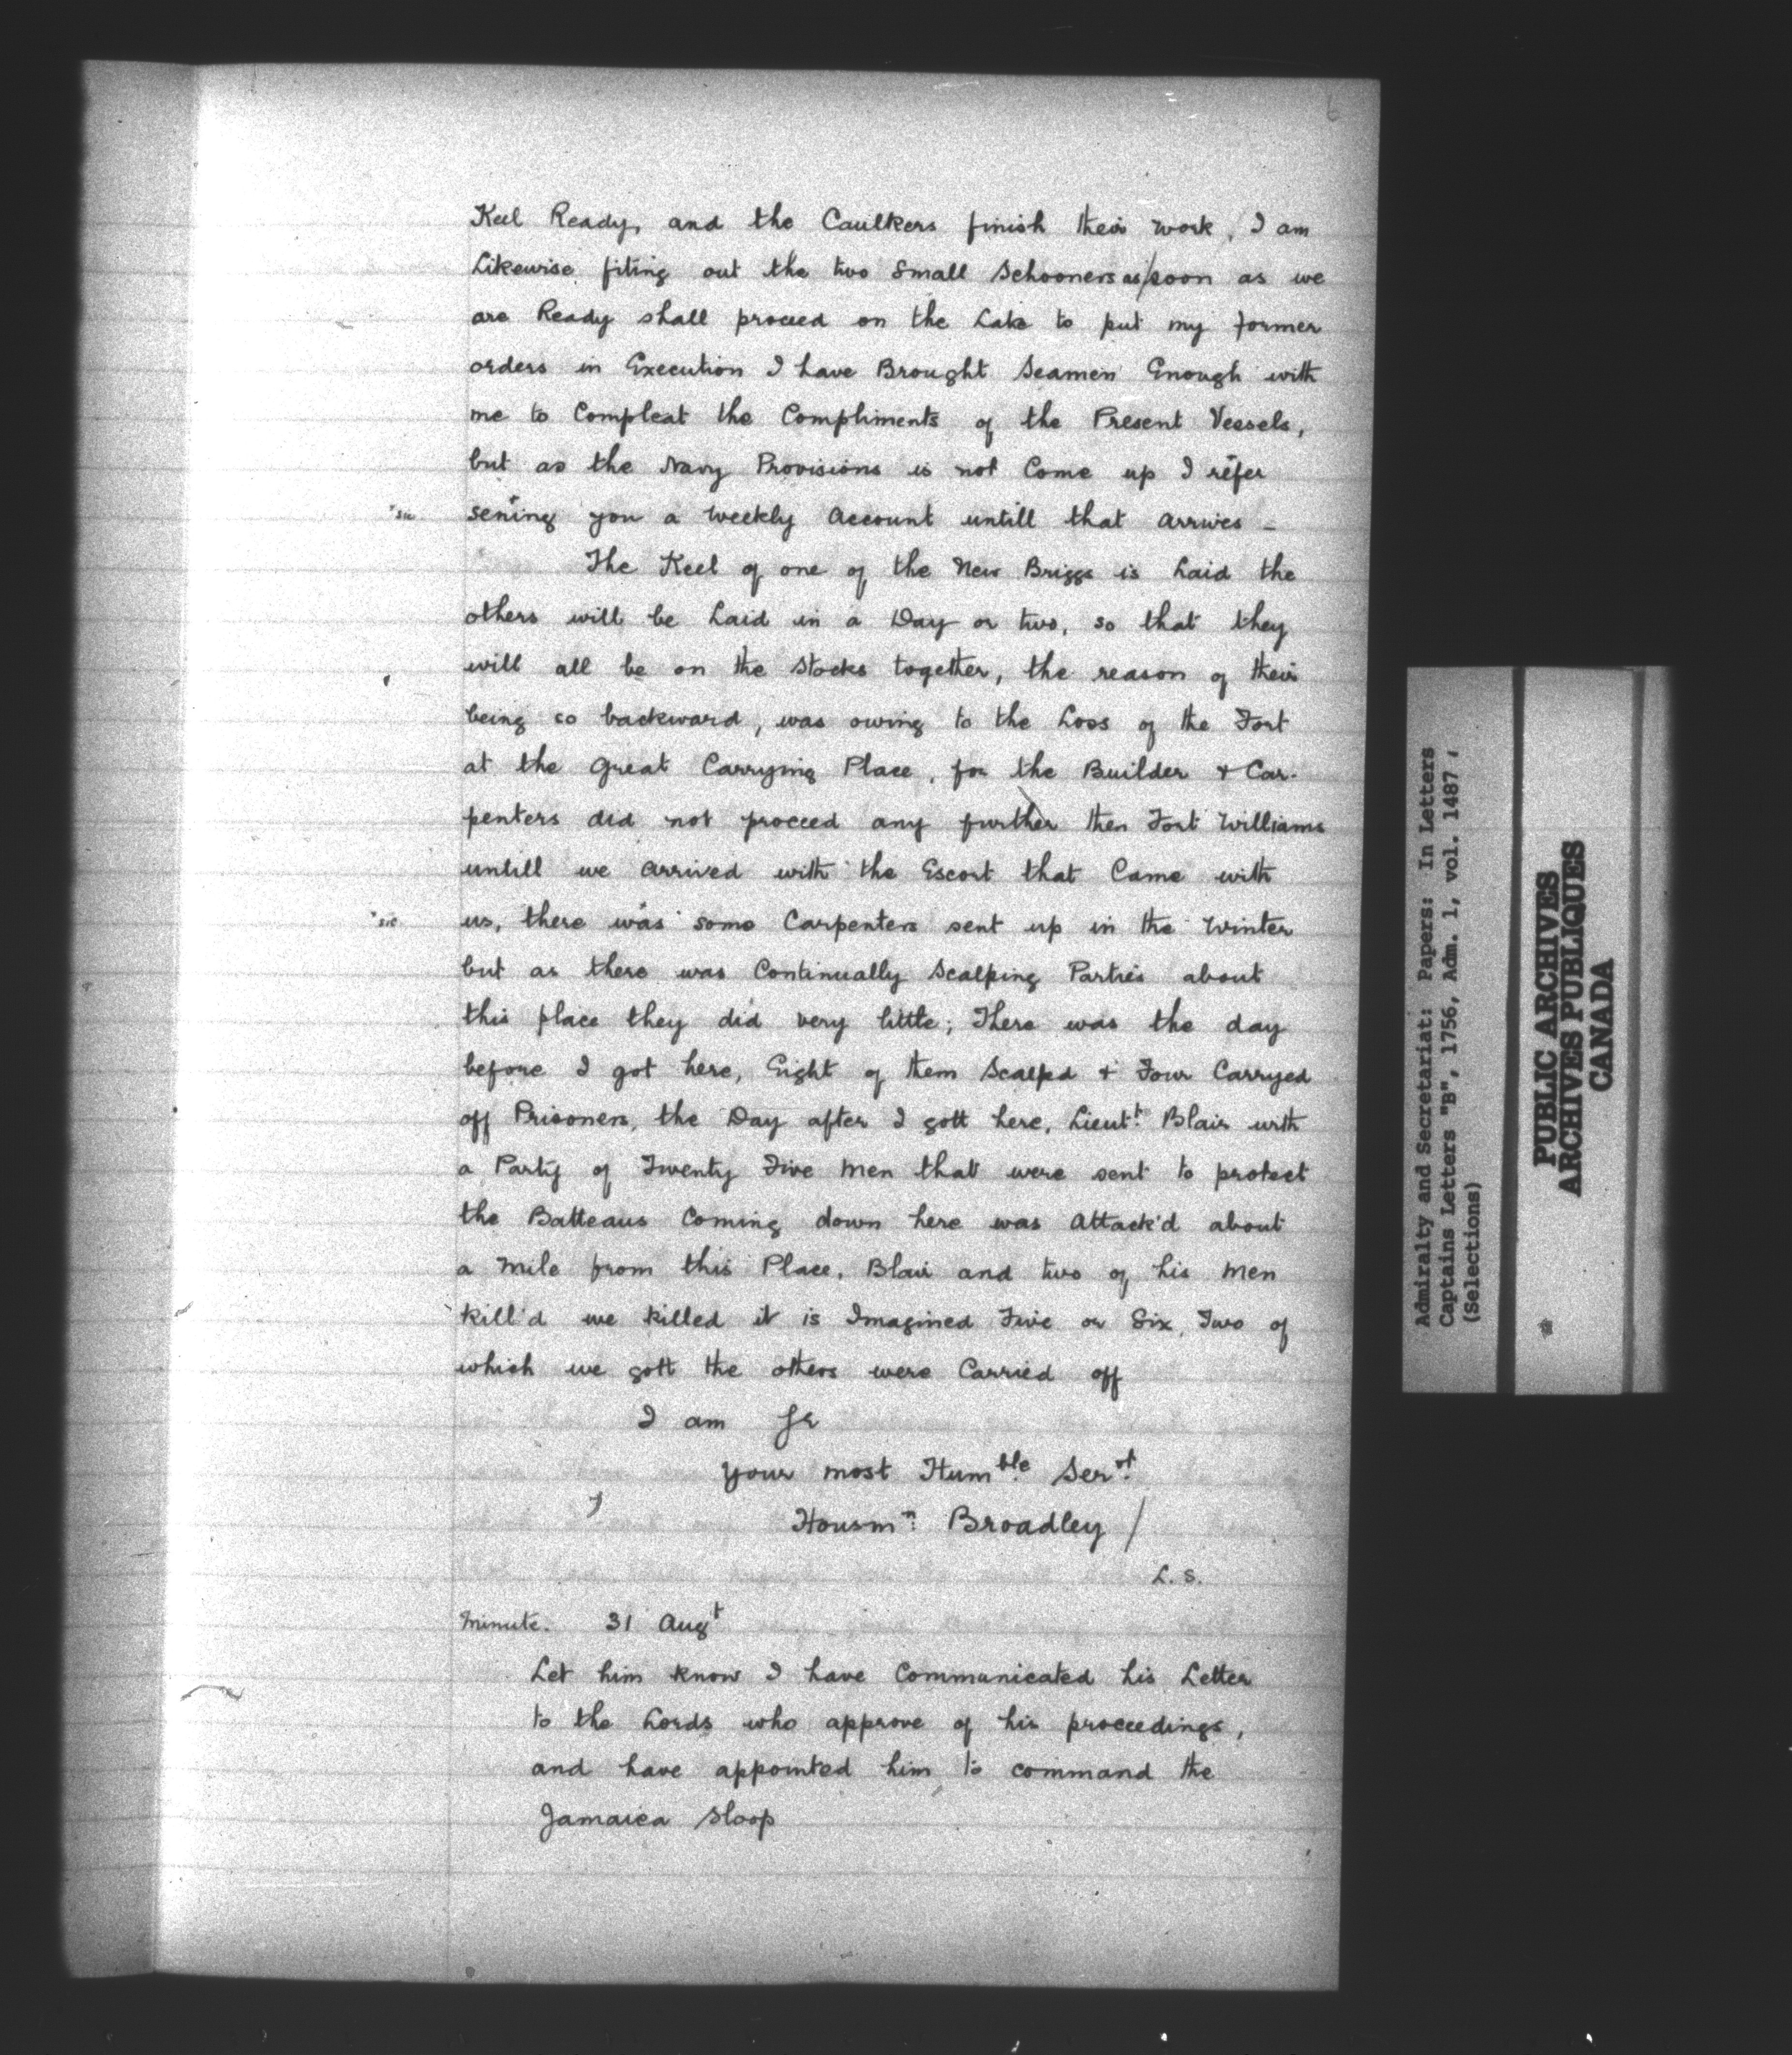 6
Keel Ready, and the Caulkers finish their work, I am
Likewise fiting out the two Small Schooners as/soon as we
are Ready shall proceed on the Lake to put my former
orders in Execution I have Brought Seamen Enough with
me to Compleat the Compliments of the Present Vessels,
but as the Navy Provisions is not Come up I refer
"sic sening you a weekly Account untill that arrives -
The Keel of one of the New Briggs is Laid the
others will be Laid in a Day or two, so that they
will all be on the Stocks together, the reason of their
being so backward, was owing to the Loss of the Fort
at the Great Carrying Place, for the Builder & Car-
penters did not proceed any further then Fort Williams
untill we arrived with the Escort that Came with
"sic us, there was some Carpenters sent up in the Winter
but as there was Continually Scalping Parties about
this place they did very little; There was the day
before I got here, Eight of them Scalped & Four Carryed
off Prisoners, the Day after I gott here, Lieut.t Blair with
a Party of Twenty Five Men that were sent to protect
the Batteaus Coming down here was Attack'd about
a Mile from this Place, Blair and two of his Men
kill'd we killed it is Imagined Five or Six, Two of
which we gott the others were Carried off
I am Sr
Your most Humble Servt.
Housmn: Broadley /
L. S.
Minute. 31 Augt
Let him know I have Communicated his Letter
to the Lords who approve of his proceedings,
and have appointed him to command the
Jamaica Sloop
Admiralty and Secretariat: Papers: In Letters
Captains Letters "B", 1756, Adm. 1, vol. 1487,
(Selections)
PUBLIC ARCHIVES
ARCHIVES PUBLIQUES
CANADA